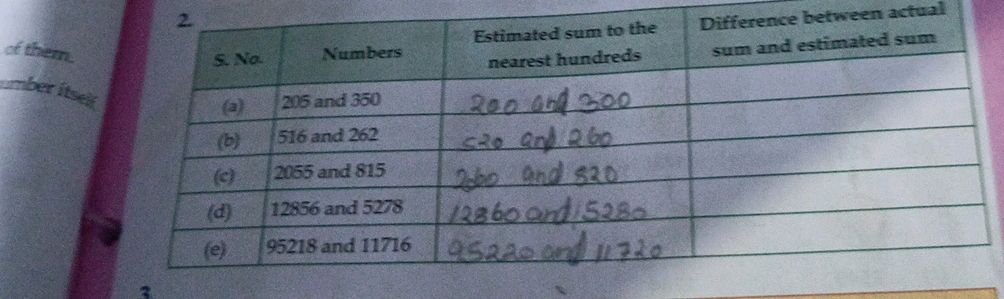 of them.
umber itself
2.
S. No. Numbers Estimated sum to the nearest hundreds Difference between actual sum and estimated sum
(a) 205 and 350 200 and 300
(b) 516 and 262 520 and 260
(c) 2055 and 815 2060 and 820
(d) 12856 and 5278 12860 and 5280
(e) 95218 and 11716 95220 and 11720
3.